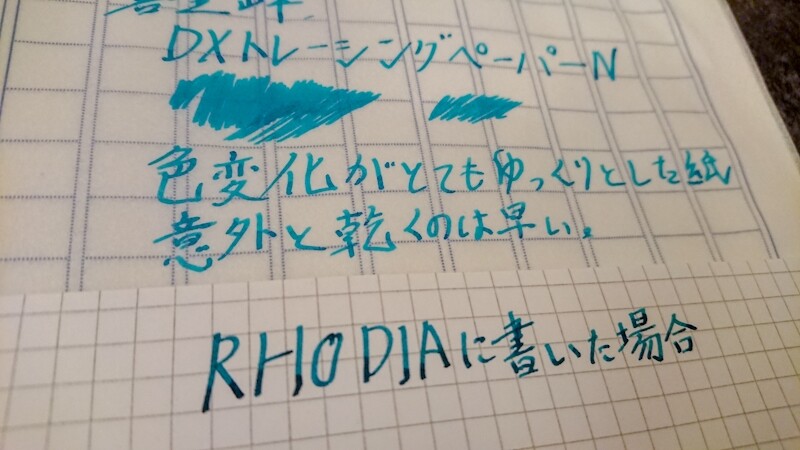 DXトレーシングペーパーN
色変化がとてもゆっくりとした紙
意外と乾くのは早い。
RHODIAに書いた場合